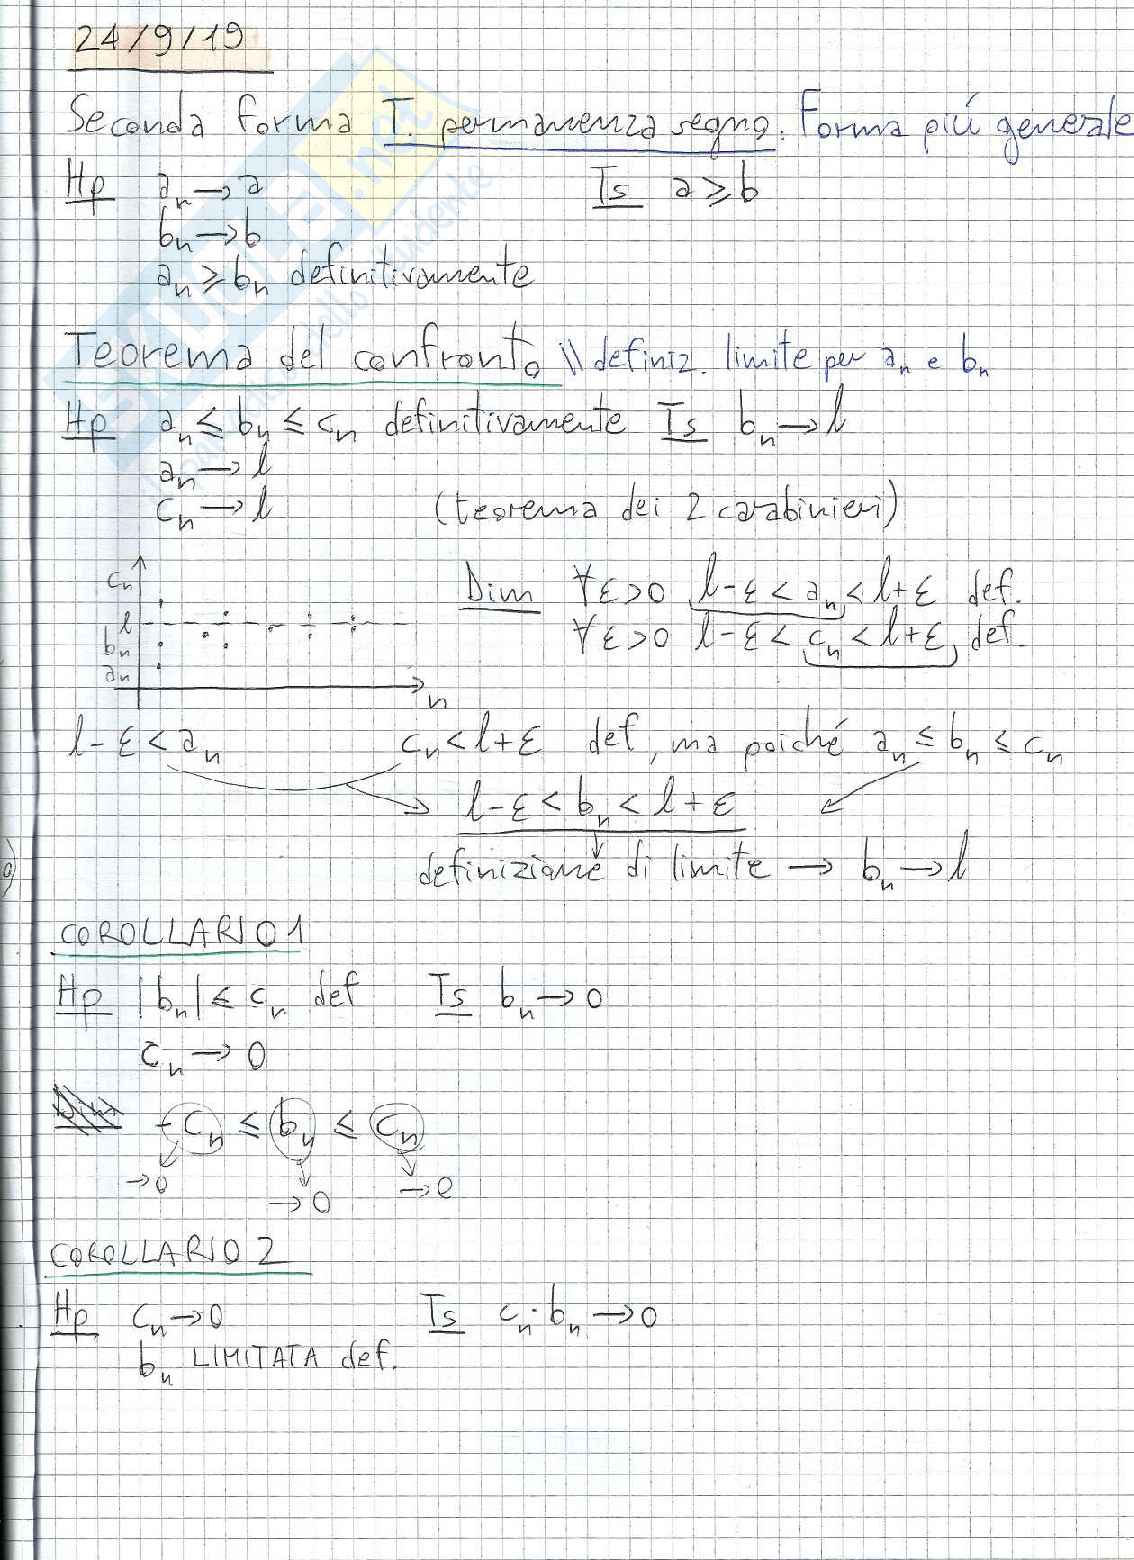 24/9/19
Seconda forma T. permanenza segno. Forma più generale
Hp aₙ → a Ts a ⩾ b
bₙ → b
aₙ ⩾ bₙ definitivamente
Teorema del confronto \\ definiz. limite per aₙ e bₙ
Hp aₙ ≤ bₙ ≤ cₙ definitivamente Ts bₙ → l
aₙ → l
cₙ → l (teorema dei 2 carabinieri)
cₙ
l
bₙ
aₙ
n
Dim ∀ε>0 l-ε < aₙ < l+ε def.
∀ε>0 l-ε < cₙ < l+ε, def.
l-ε < aₙ cₙ < l+ε def, ma poiché aₙ ≤ bₙ ≤ cₙ
l-ε < bₙ < l+ε
definizione di limite → bₙ → l
COROLLARIO 1
Hp |bₙ| ≤ cₙ def Ts bₙ → 0
cₙ → 0
Dim -cₙ ≤ bₙ ≤ cₙ
→0 →0 →0
COROLLARIO 2
Hp cₙ → 0 Ts cₙ·bₙ → 0
bₙ LIMITATA def.